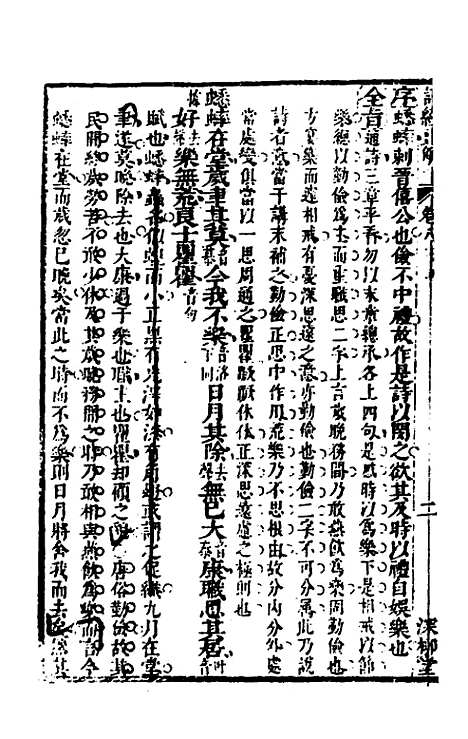 序蟋蟀刺晉僖公也儉不中禮故作是詩以閔之欲其及時以禮自娛樂也
全旨通詩三章平看勿以末章總承各上四句是感時以為樂下是相戒以節
樂總以勤儉為主重職思二字上言歲晚務閒乃敢燕飲為樂固勤儉也
方燕樂而遽相戒有憂深思遠之意亦勤儉也勤儉二字不可分屬此乃說
詩者意當于講末補之勤儉正思中作用荒樂乃不思根由故分內分外處
當處變俱當以一思周通之瞿瞿蹶蹶休休正深思遠慮之極則也
蟋蟀在堂歲聿其莫今我不樂日月其除無已大康職思其居
好樂無荒良士瞿瞿
賦也蟋蟀蟲名似蝗而小正黑有光澤如漆有角翅或謂之促織九月在堂
聿遂莫晚除去也大康過于樂也職主也瞿瞿却顧之貌唐俗勤儉故其
民間終歲勞苦不敢少休及其歲晚務閒之時乃敢相與燕飲為樂而言今
蟋蟀在堂而歲忽已晚矣當此之時而不為樂則日月將舍我而去矣